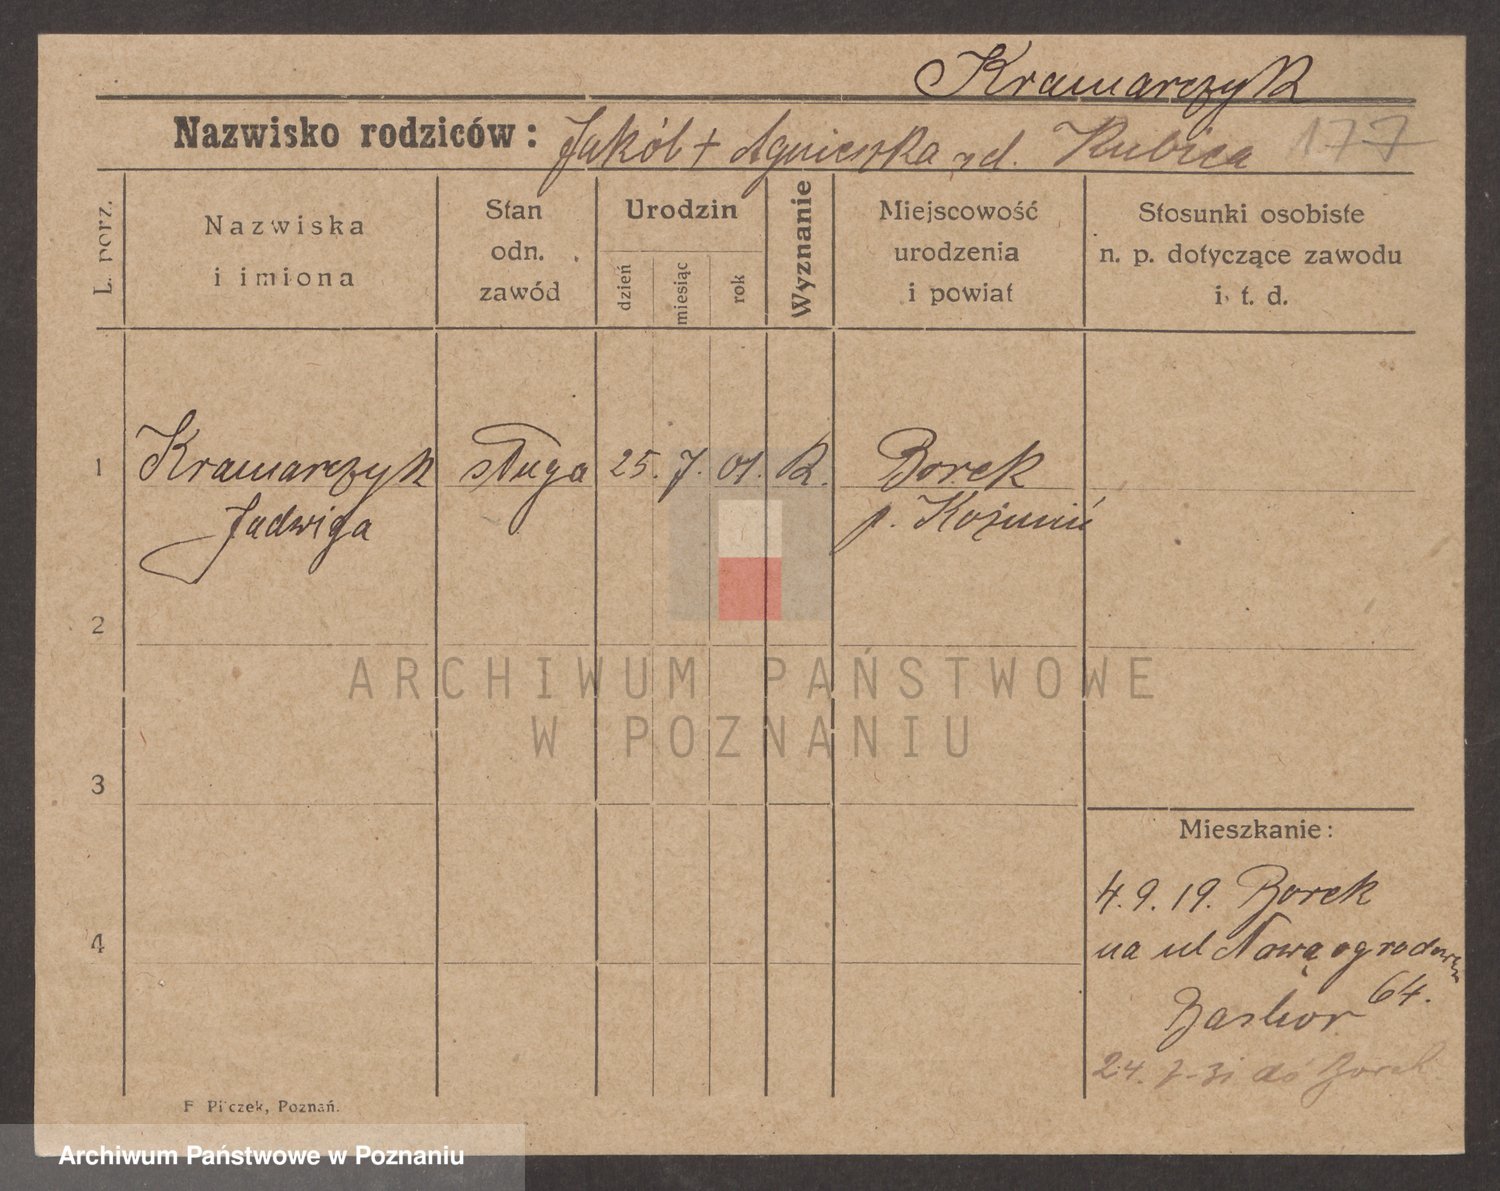 Kramarczyk
Nazwisko rodziców: Jakób + Agnieszka zd. Kubica 177
L. porz.
Nazwiska
i imiona
Stan
odn.
zawód
Urodzin
dzień
miesiąc
rok
Wyznanie
Miejscowość
urodzenia
i powiat
Stosunki osobiste
n. p. dotyczące zawodu
i t. d.
1 Kramarczyk sługa 25. 7. 01. R. Borek
Jadwiga p. Koźmiń
2
3
4
Mieszkanie:
4. 9. 19. Borek
na ul Nową ogrodową
64.
24. 7-31 do Borek
F Pilczek, Poznań.
ARCHIWUM PAŃSTWOWE
W POZNANIU
Archiwum Państwowe w Poznaniu